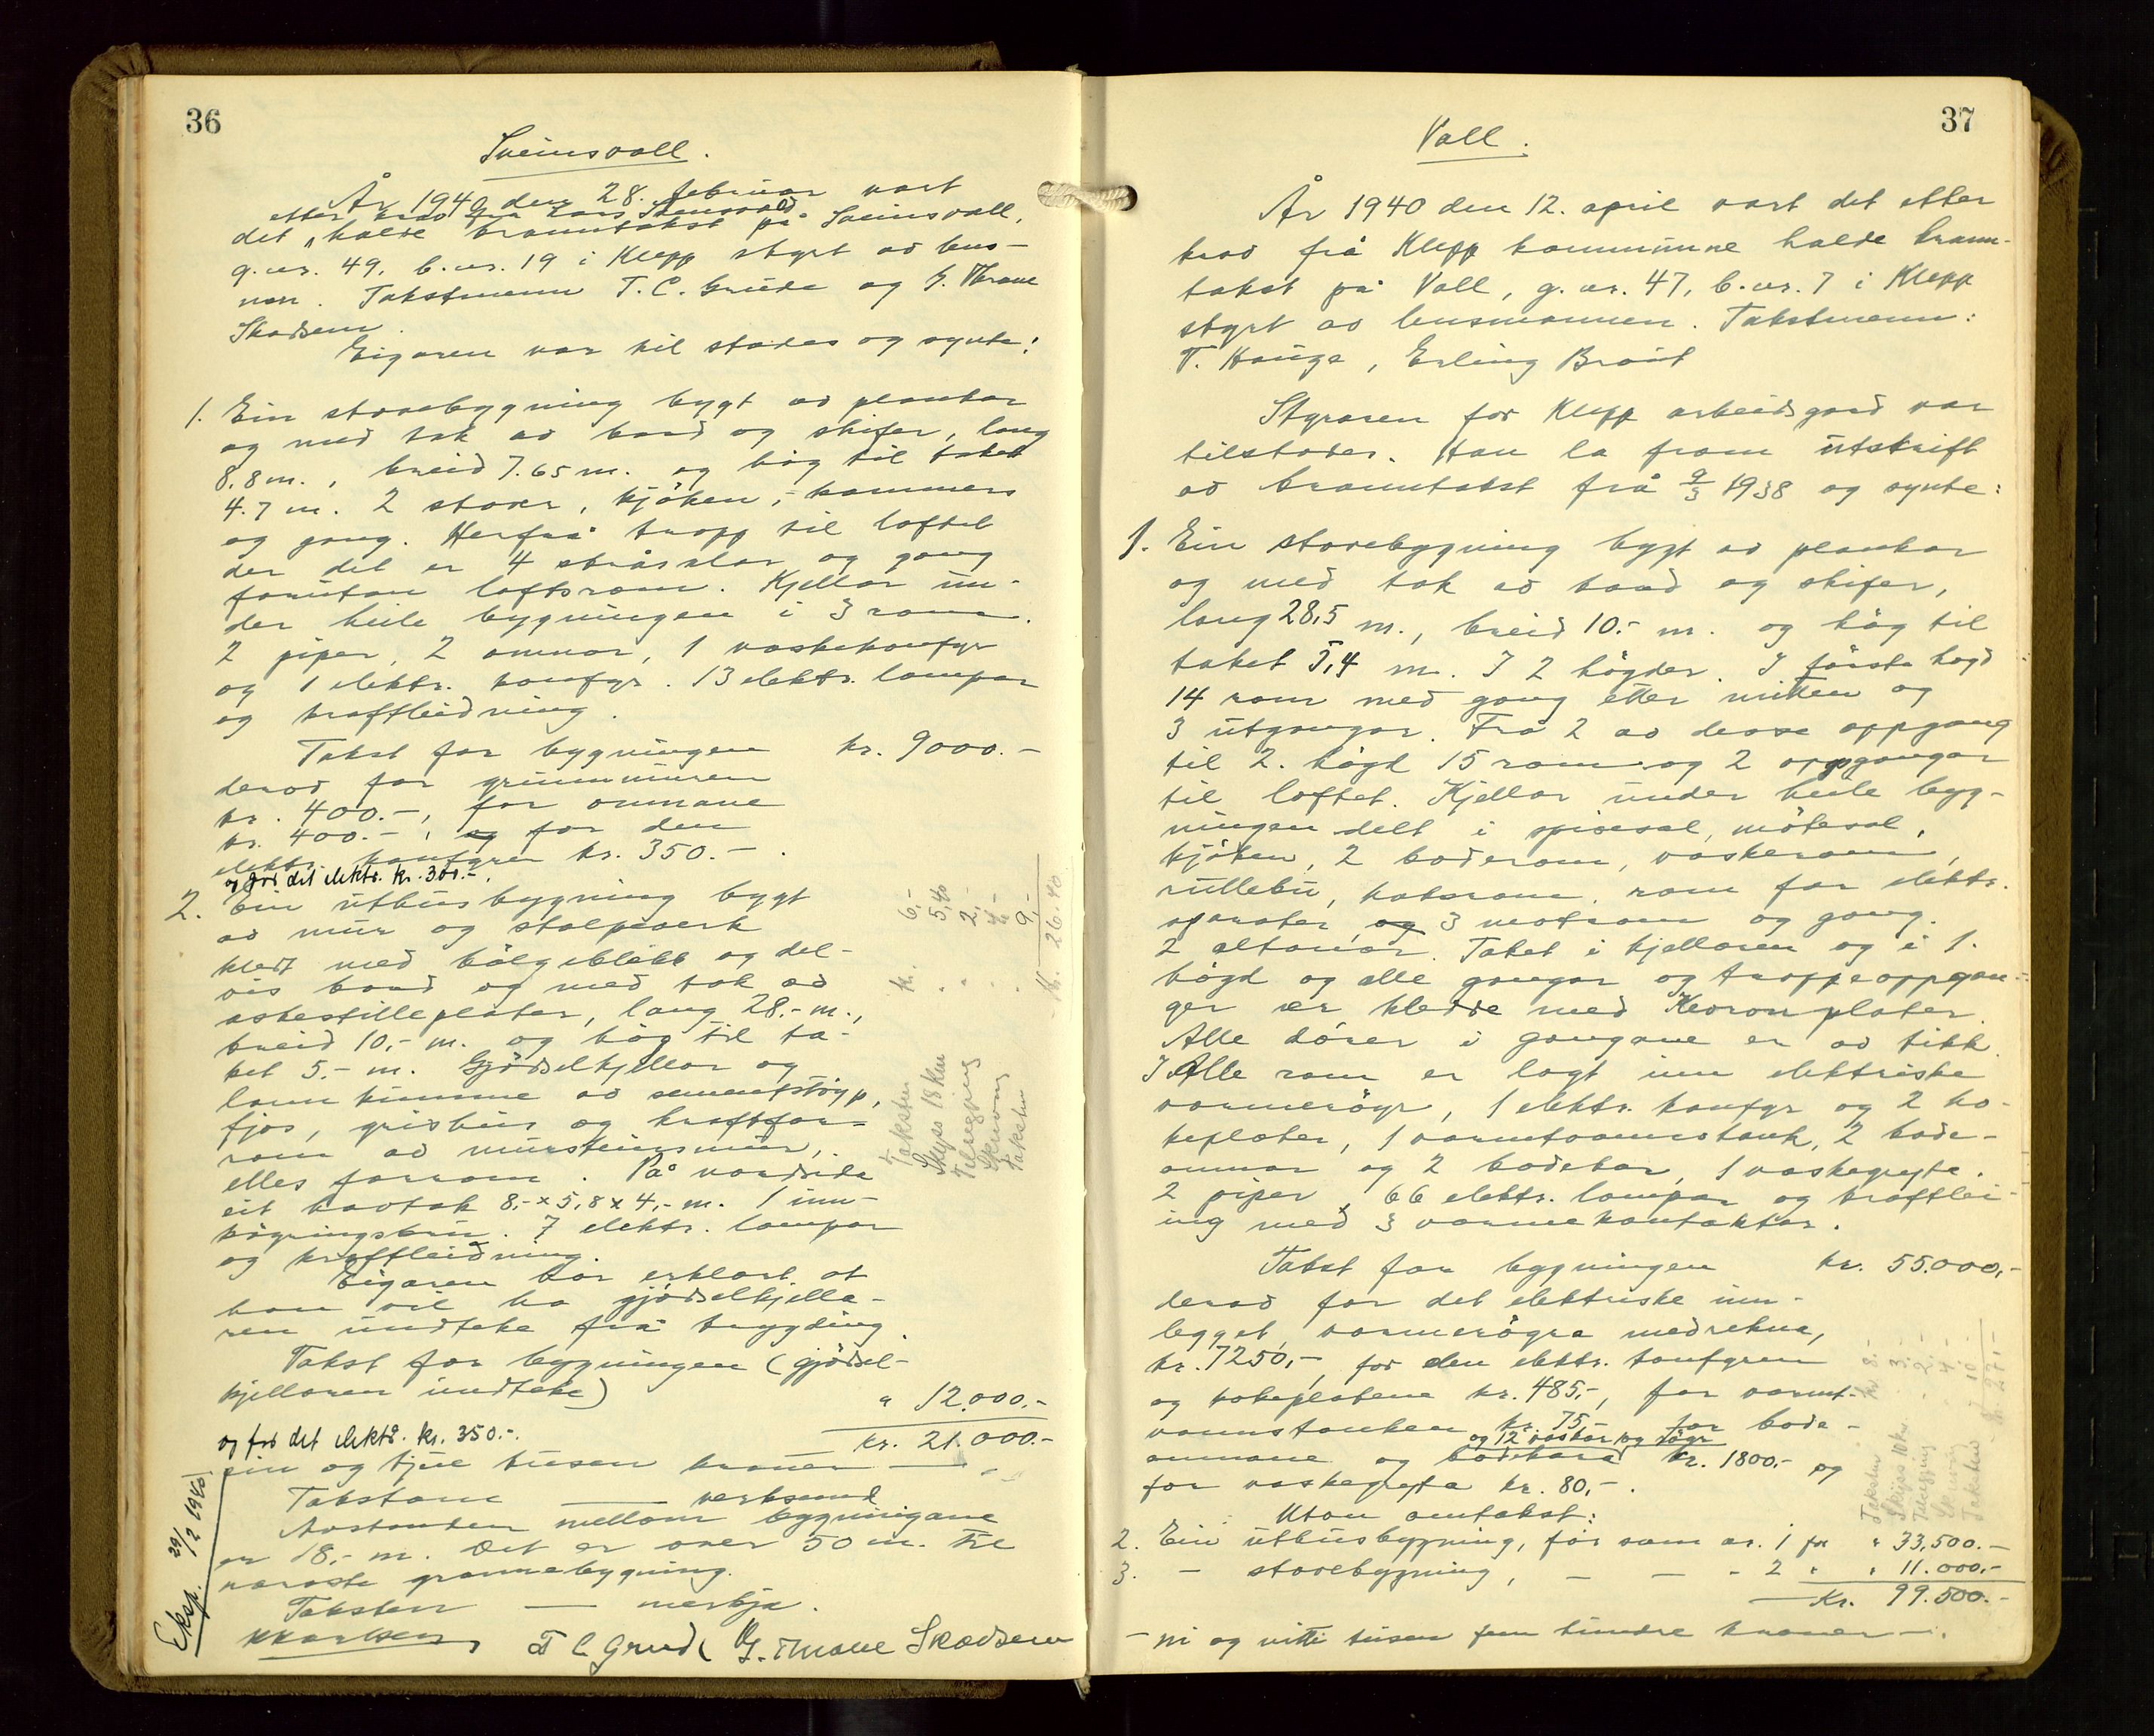 36
Sveinsvoll.
År 1940 den 28. februar vart
etter krav frå Lars Sveinsvoll
det halde branntakst på Sveinsvoll,
g.nr. 49, b.nr. 19 i Klepp styrt av lens-
man. Takstmenn T. C. Grude og G. Thrane
Skadsem.
Eigaren var til stades og synte:
1. Ein stovebygning bygt av plankar
og med tak av bord og skifer, lang
8.8 m., breid 7.65 m. og høg til taket
4.7 m. 2 stover, kjøken, kammers
og gang. Herfrå tropp til loftet
der det er 4 og gang
forutan loftsrom. Kjellar un-
der heile bygningen i 3 rom.
2 piper, 2 omnar, 1 vaskekomfyr
og 1 elektr. komfyr. 13 elektr. lampar
og kraftleidning.
Takst for bygningen kr. 9000.-
derav for grunnmuren
kr. 400.-, for omnane
kr. 400.-, og for den
elektr. komfyren kr. 350.-.
og for det elektr. kr. 300.-.
2. Ein uthusbygning bygt
av mur og stolpeverk
kledt med bølgeblikk og del-
vis bord og med tak av
asbestilleplater, lang 28,- m.,
breid 10,- m. og høg til ta-
ket 5,- m. Gjødselkjellar og
land kumme av sementstøyp,
fjos, grishus og kraftfor-
rom av mursteinsmur,
elles forrom. På nordsida
eit havtak 8,- x 5,8 x 4,- m. 1 inn-
køyringsbru. 7 elektr. lampar
og kraftleidning.
Eigaren har erklært at
han vil ha gjødselkjella-
ren undteke frå trygding.
Takst for bygningen (gjødsel-
kjellaren undteke) " 12.000.-
og for det elektr. kr. 350.-. kr. 21.000.-
ein og tjue tusen kroner
Takstane — verksemd
Avstanden mellom bygningane
er 18,- m. Det er over 50 m. til
næraste grannebygning.
Taksten — merkja.
T C Grude G. Thrane Skadsem
Eksp. 29/2 1940
Taksten kr. 6,-
Skyss 18 km " 5,40
Tilsegjing " 2,-
Skriving 4,-
Taksten " 9,-
Kr. 26.40
37
Vall.
År 1940 den 12. april vart det etter
krav frå Klepp kommune halde brann-
takst på Vall, g.nr. 47, b.nr. 7 i Klepp
styrt av lensmannen. Takstmenn:
T. Hauge, Erling Braut
Styraren for Klepp arbeidsgard var
tilstades. Han la fram utskrift
av branntakst frå 9/3 1938 og synte:
1. Ein stovebygning bygt av plankar
og med tak av bord og skifer,
lang 28,5 m., breid 10.- m. og høg til
taket 5,4 m. I 2 høgder. I første høgd
14 rom med gang etter midten og
3 utgangar. Frå 2 av desse oppgang
til 2. høgd 15 rom og 2 oppgangar
til loftet. Kjellar under heile byg-
ningen delt i spisesal, møtesal,
kjøken, 2 baderom, vaskerom,
rullebu, koksrom, rom for elektr.
aparater, og 3 matrom og gang.
2 altanar. Taket i kjellaren og i 1.
høgd og alle gangar og troppeoppgan-
ger er kledde med plater.
Alle dører i gangane er av tikk.
I Alle rom er lagt inn elektriske
varmerøyr, 1 elektr. komfyr og 2 ko-
keplater, 1 varmtvannstank, 2 bade-
omnar og 2 badekar, 1 vaskegryta.
2 piper, 66 elektr. lampar og kraftlei-
ing med 3 varmekontaktar.
Takst for bygningen kr. 55.000,-
derav for det elektriske inn-
legget, varmerøyra medrekna,
kr. 7250,-, for den elektr. komfyren
og kokeplatene kr. 485,-, for varmt-
vannstanken kr. 75,- for bade-
og 12 vaskar og røyr
omnane og badekara kr. 1800,- og
for vaskegryta kr. 80,-.
Utan omtakst:
2. Ein uthusbygning, før som nr. 1 for " 33.500.-
3. - stovebygning, — — - 2 " " 11.000.-
Kr. 99.500.-
- ni og nitti tusen fem hundre kroner -.
Taksten kr 8,-
Skyss 10 km 3,-
Tilsegjing - 2,-
Skriving - 4,-
Taksten 10
kr. 27,-